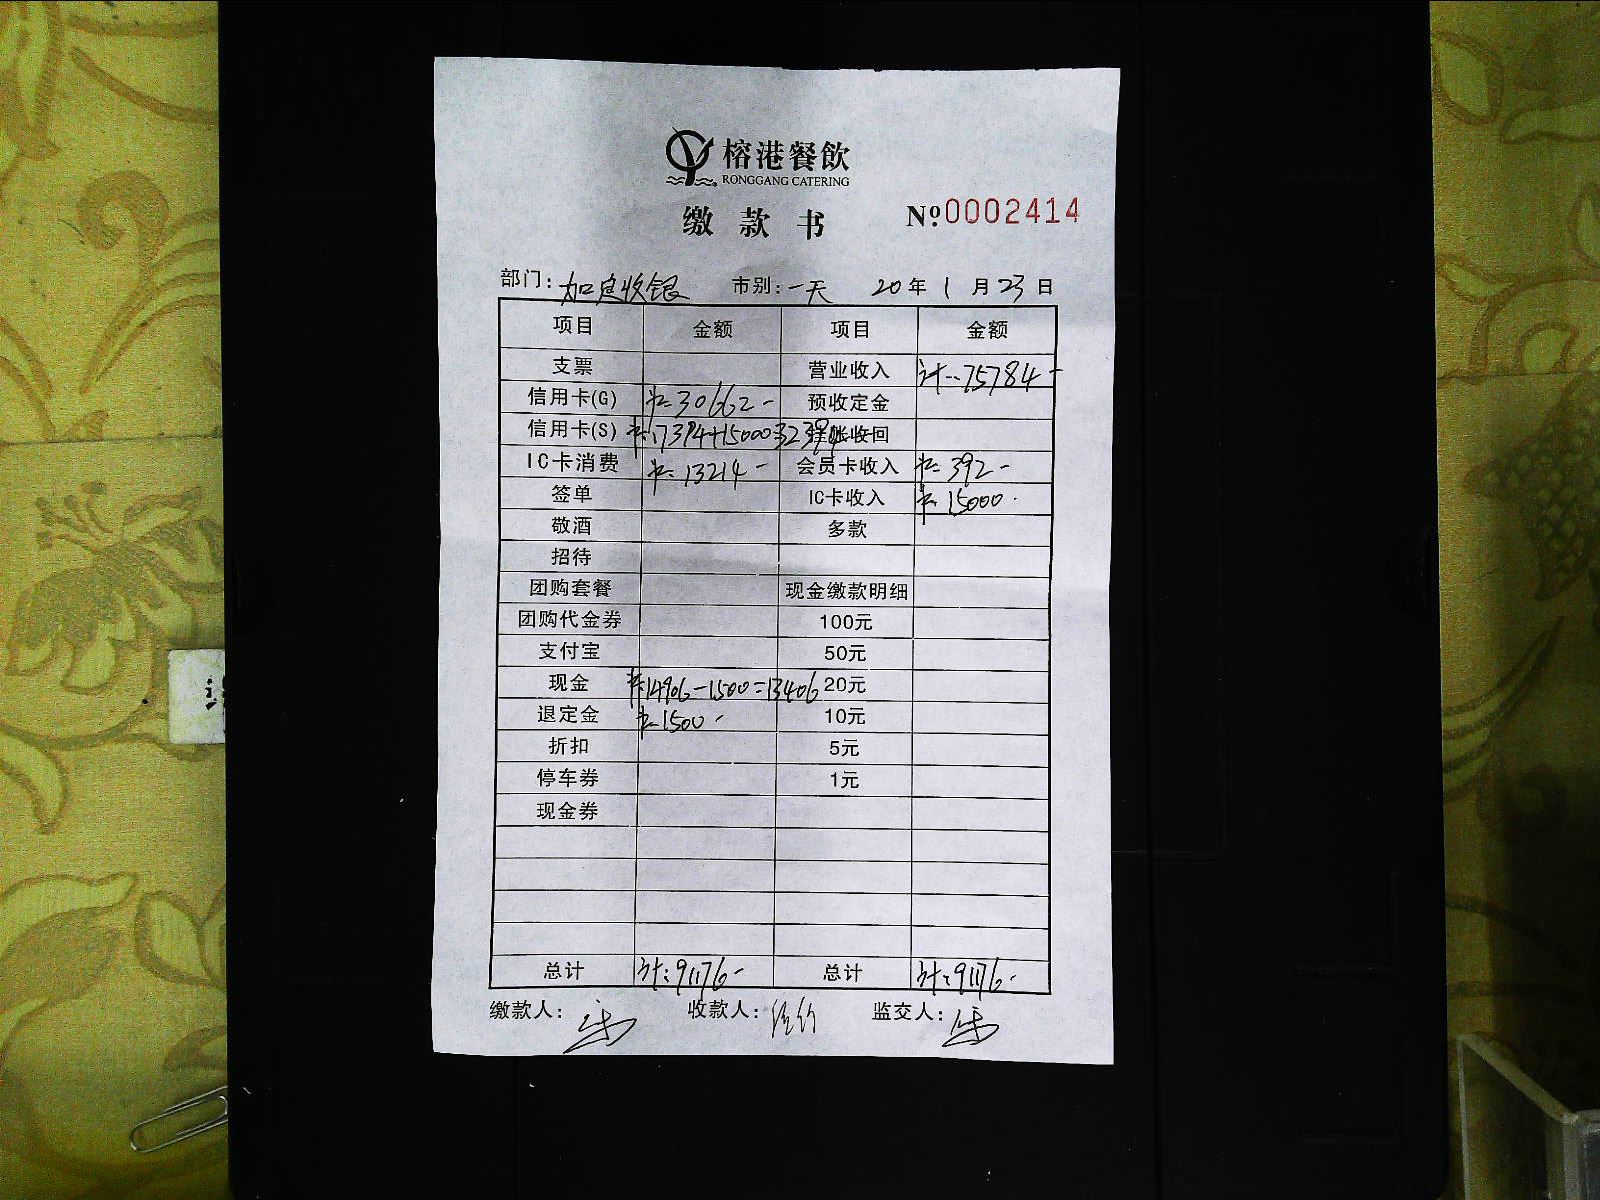 榕港餐飲
RONGGANG CATERING
缴款书 №0002414
部门: 加定收银 市别: 一天 20年1月23日
项目 金额 项目 金额
支票 营业收入 计--75784-
信用卡(G) 30662- 预收定金
信用卡(S) 17394+15000=32394 挂账收回
IC卡消费 13214- 会员卡收入 392-
签单 IC卡收入 15000-
敬酒 多款
招待
团购套餐 现金缴款明细
团购代金券 100元
支付宝 50元
现金 14906-1500=13406 20元
退定金 1500- 10元
折扣 5元
停车券 1元
现金券
总计 计:91176- 总计 计:91176-
缴款人: 收款人: 监交人: